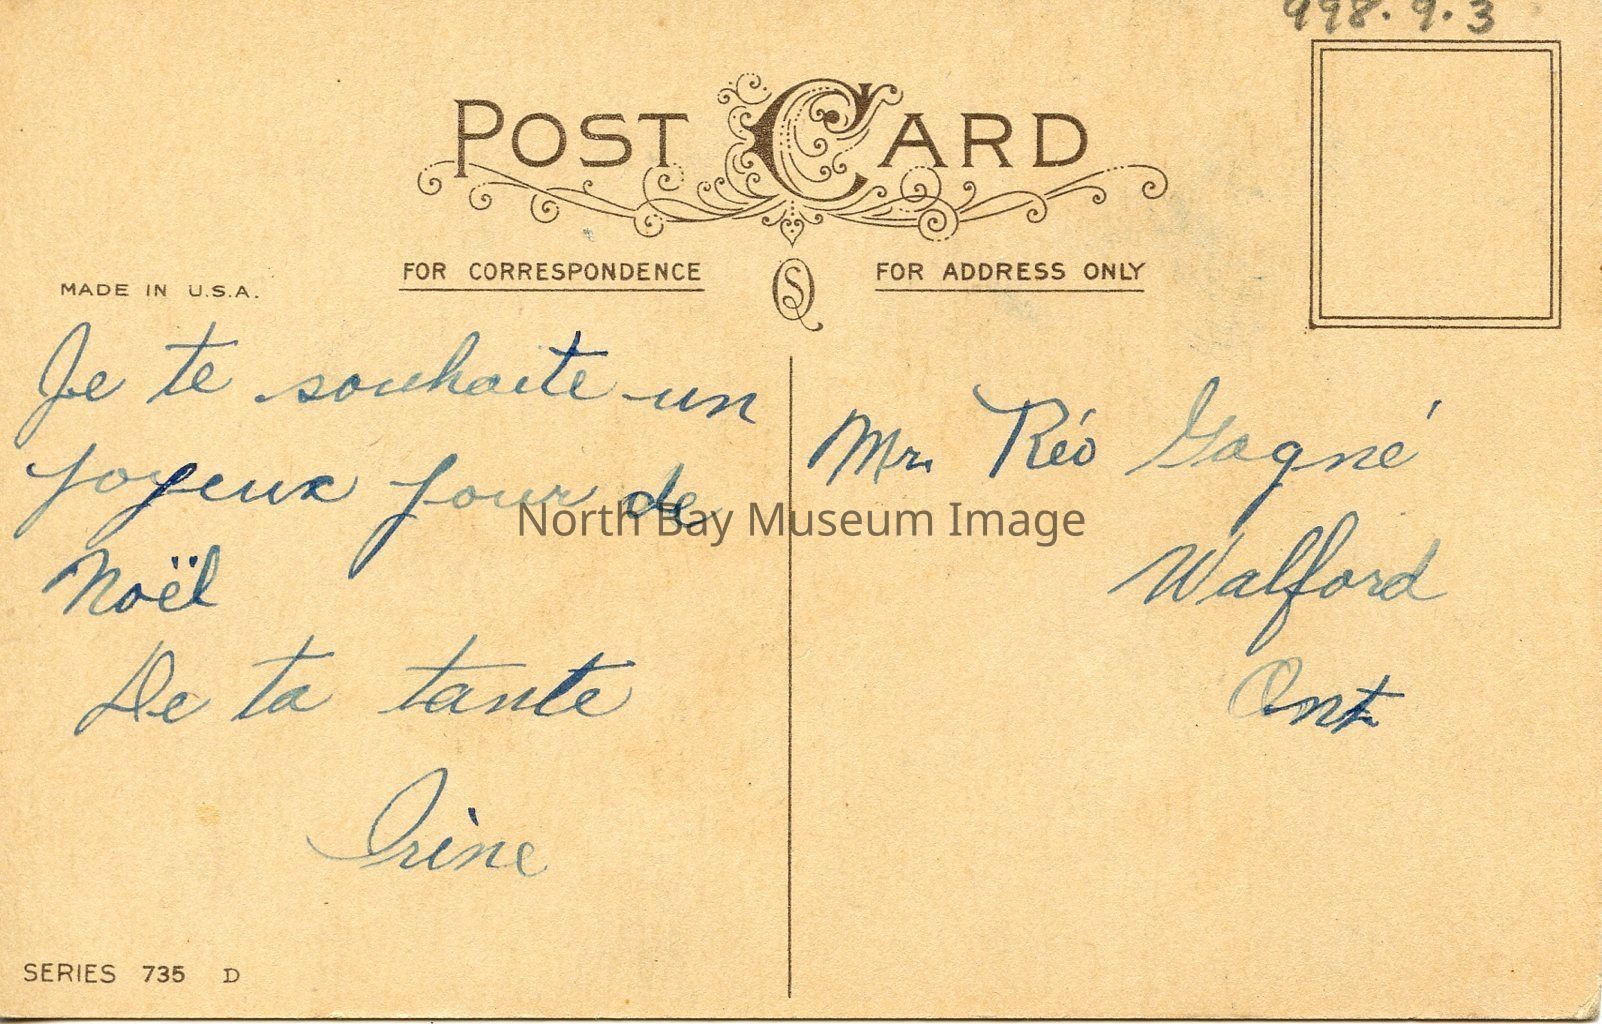 998.9.3
POST CARD
FOR CORRESPONDENCE
FOR ADDRESS ONLY
MADE IN U.S.A.
Je te souhaite un
joyeux jour de
Noël
De ta tante
Irène
Mr. Réo Gagné
Walford
Ont
North Bay Museum Image
SERIES 735 D